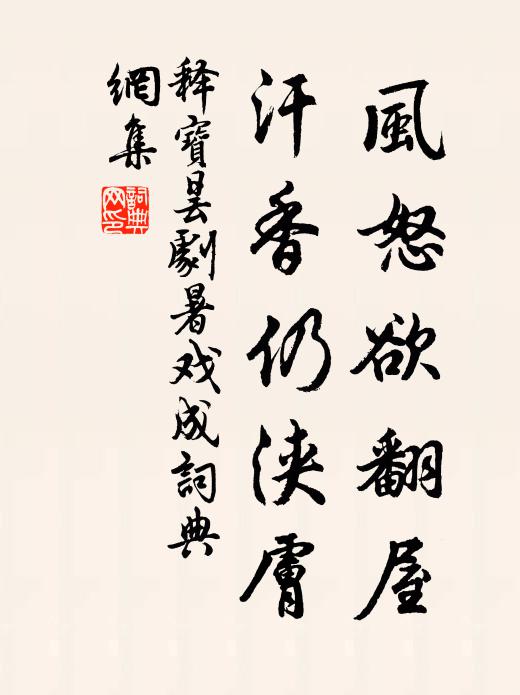 風怒欲翻屋
汗香仍浹膚
释寶曇劇暑戏成詞典
網集
詞典
网印